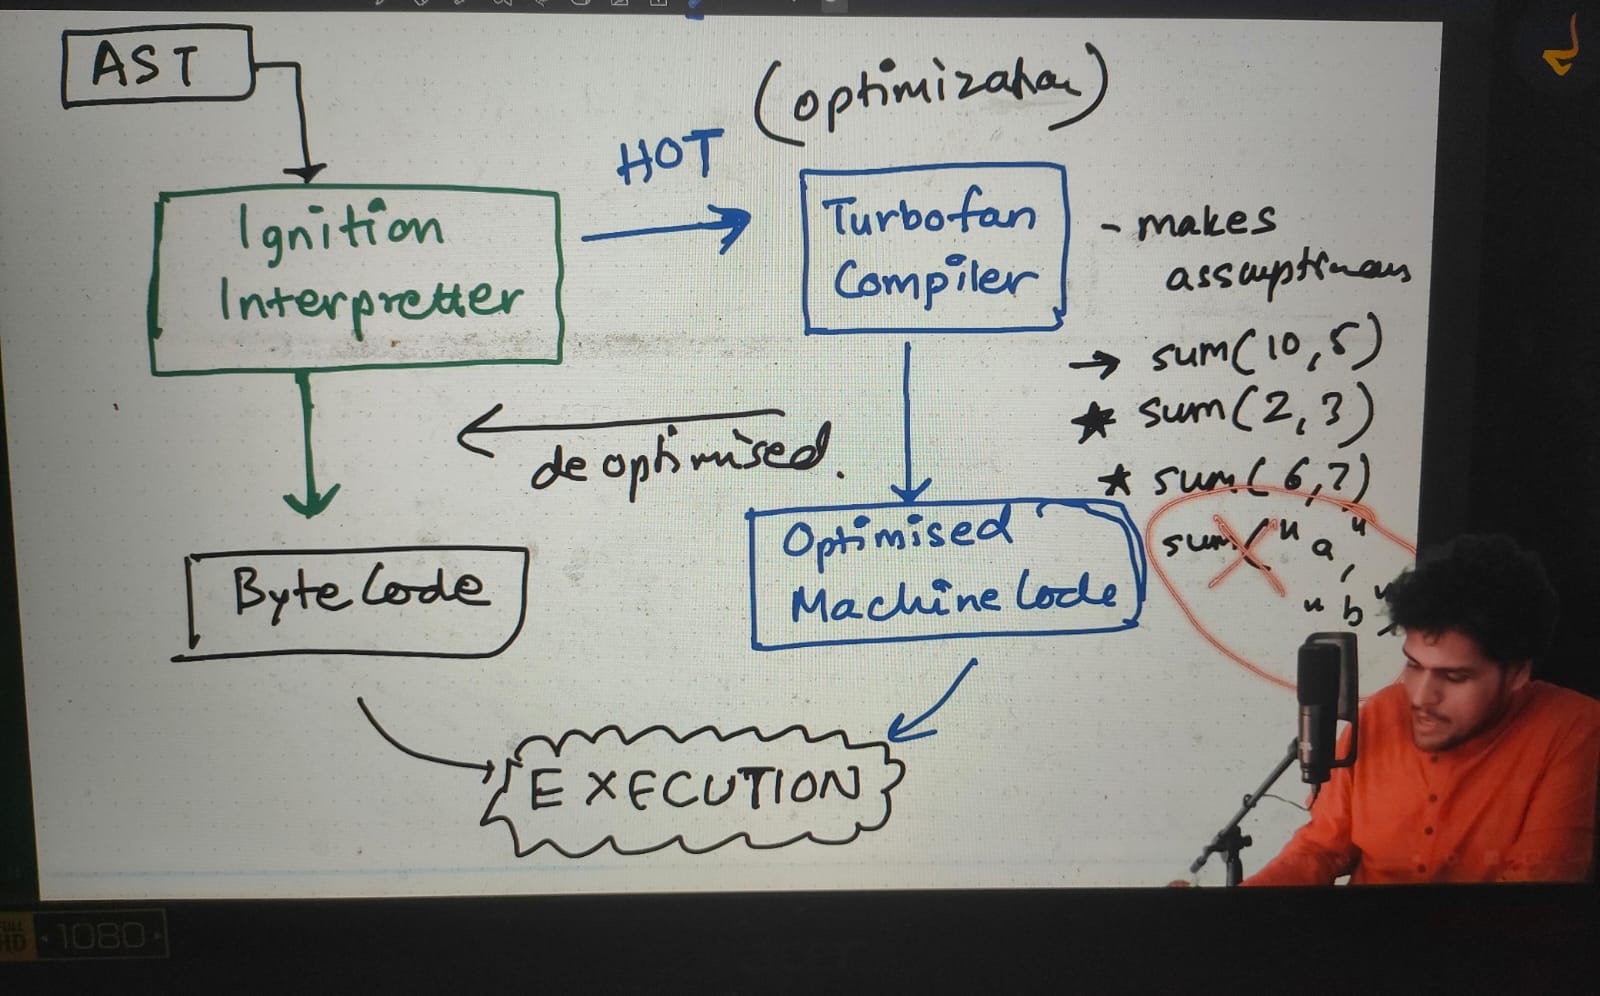 AST
(optimization)
HOT
Ignition
Interpretter
Turbofan
Compiler
- makes
assumptions
→ sum(10,5)
★ sum(2,3)
★ sum(6,7)
sum("a",
"b"
deoptimised.
Optimised
Machine Code
Byte Code
EXECUTION
FULL
HD
1080